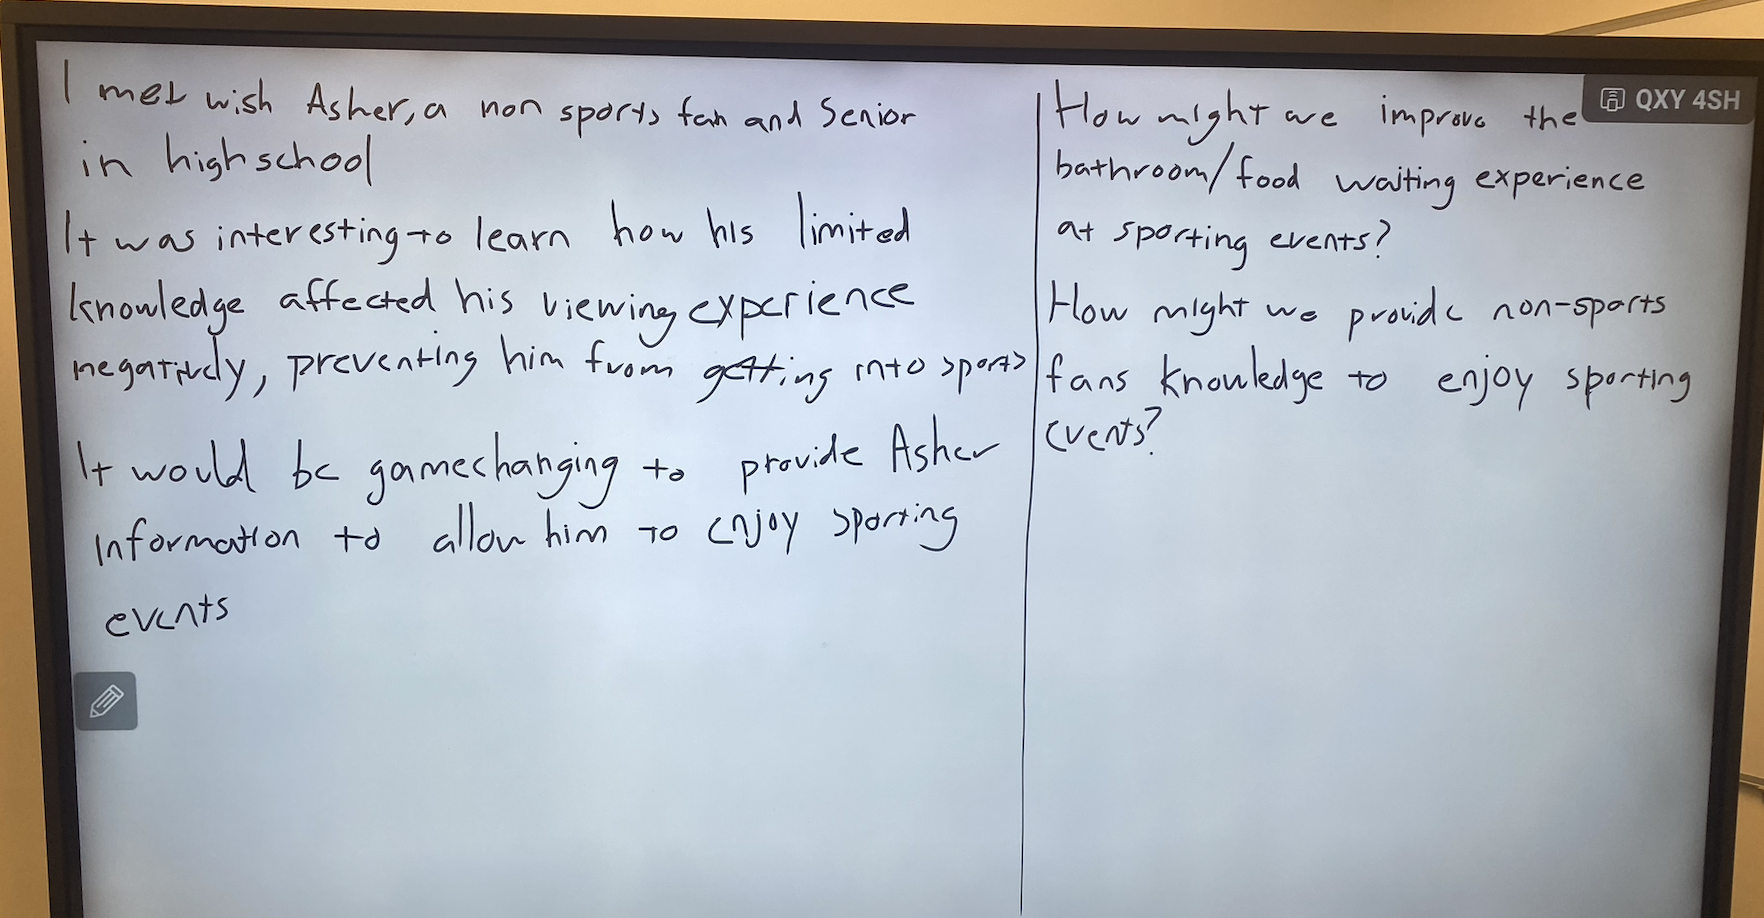 I met wish Asher, a non sports fan and Senior
in highschool
It was interesting to learn how his limited
knowledge affected his viewing experience
negatively, preventing him from getting into sports
It would be gamechanging to provide Asher
information to allow him to enjoy sporting
events
How might we improve the
bathroom/food waiting experience
at sporting events?
How might we provide non-sports
fans knowledge to enjoy sporting
events?
QXY 4SH